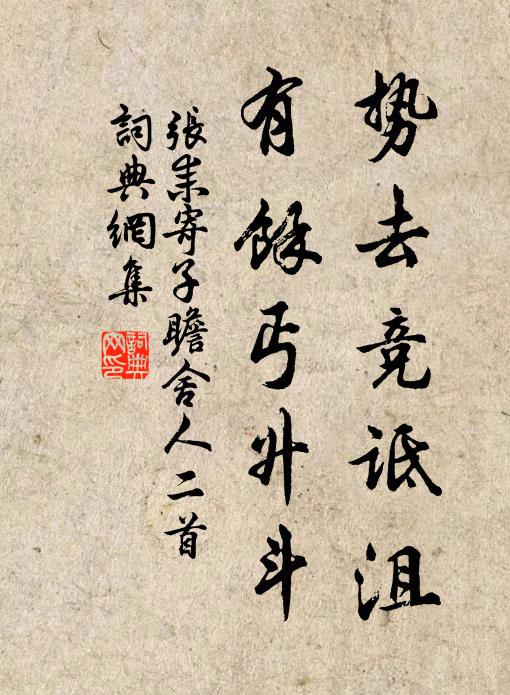 势去竞诋沮
有馀丐升斗
張耒寄子瞻舍人二首
詞典網集
詞典網印